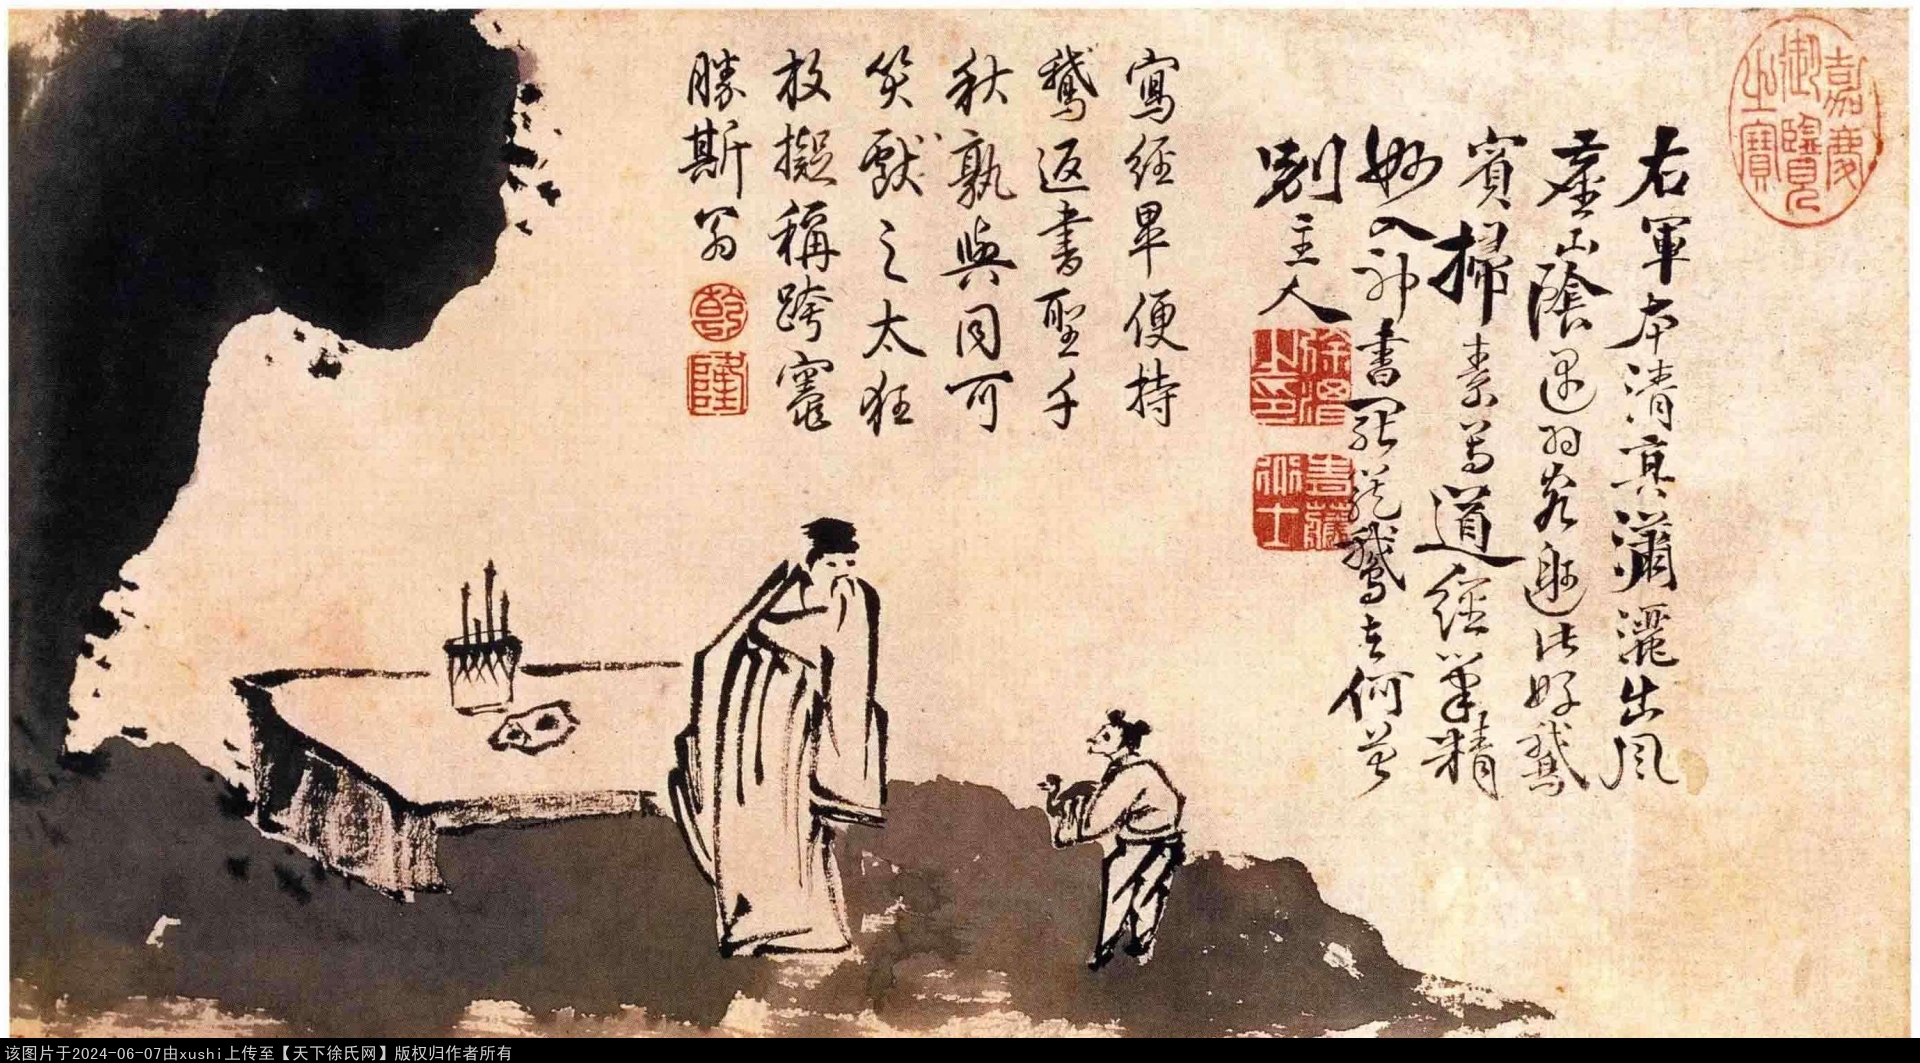 嘉慶
御覽
之寶
右軍本清真瀟灑出風
塵山陰遇羽客邀此好鵞
賓掃素寫道經筆精
妙入神書罷籠鵞去何曾
別主人
徐渭
之印
寫經畢便持
鵞返書聖千
秋孰與同可
笑獻之太狂
放擬稱跨竈
勝斯翁
乾
隆
该图片于2024-06-07由xushi上传至【天下徐氏网】版权归作者所有